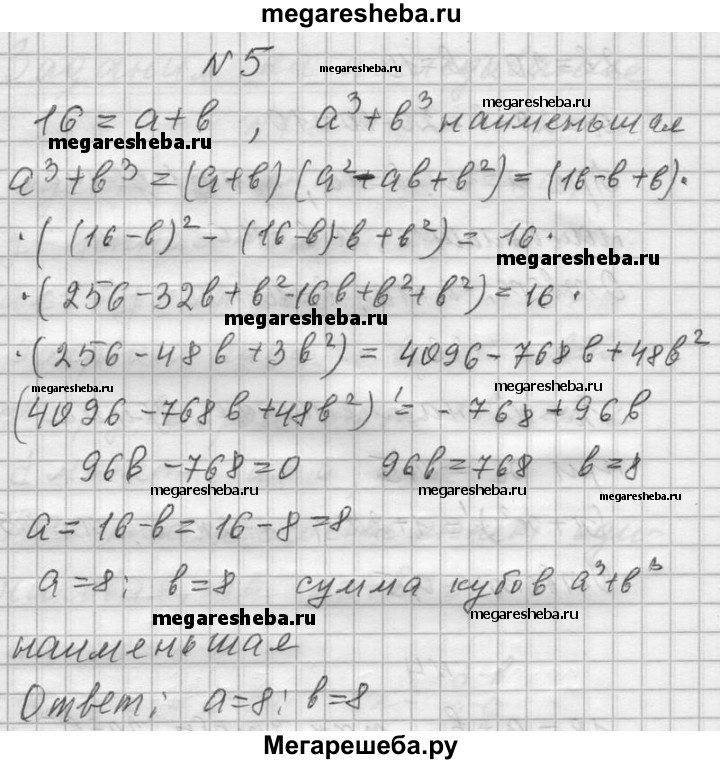 megaresheba.ru
N 5 megaresheba.ru
16 = a + в , a³ + в³ наименьшая megaresheba.ru
megaresheba.ru
a³ + в³ = (a + в) (a² - aв + в²) = (16 - в + в) ·
· ( (16 - в)² - (16 - в) · в + в²) = 16 ·
megaresheba.ru
· (256 - 32в + в² - 16в + в² + в²) = 16 ·
megaresheba.ru
· (256 - 48в + 3в²) = 4096 - 768в + 48в²
megaresheba.ru megaresheba.ru
(4096 - 768в + 48в²)' = - 768 + 96в
96в - 768 = 0 96в = 768 в = 8
megaresheba.ru megaresheba.ru megaresheba.ru
a = 16 - в = 16 - 8 = 8
a = 8; в = 8 сумма кубов a³ + в³
megaresheba.ru megaresheba.ru
наименьшая
Ответ: a = 8; в = 8
Мегарешеба.ру